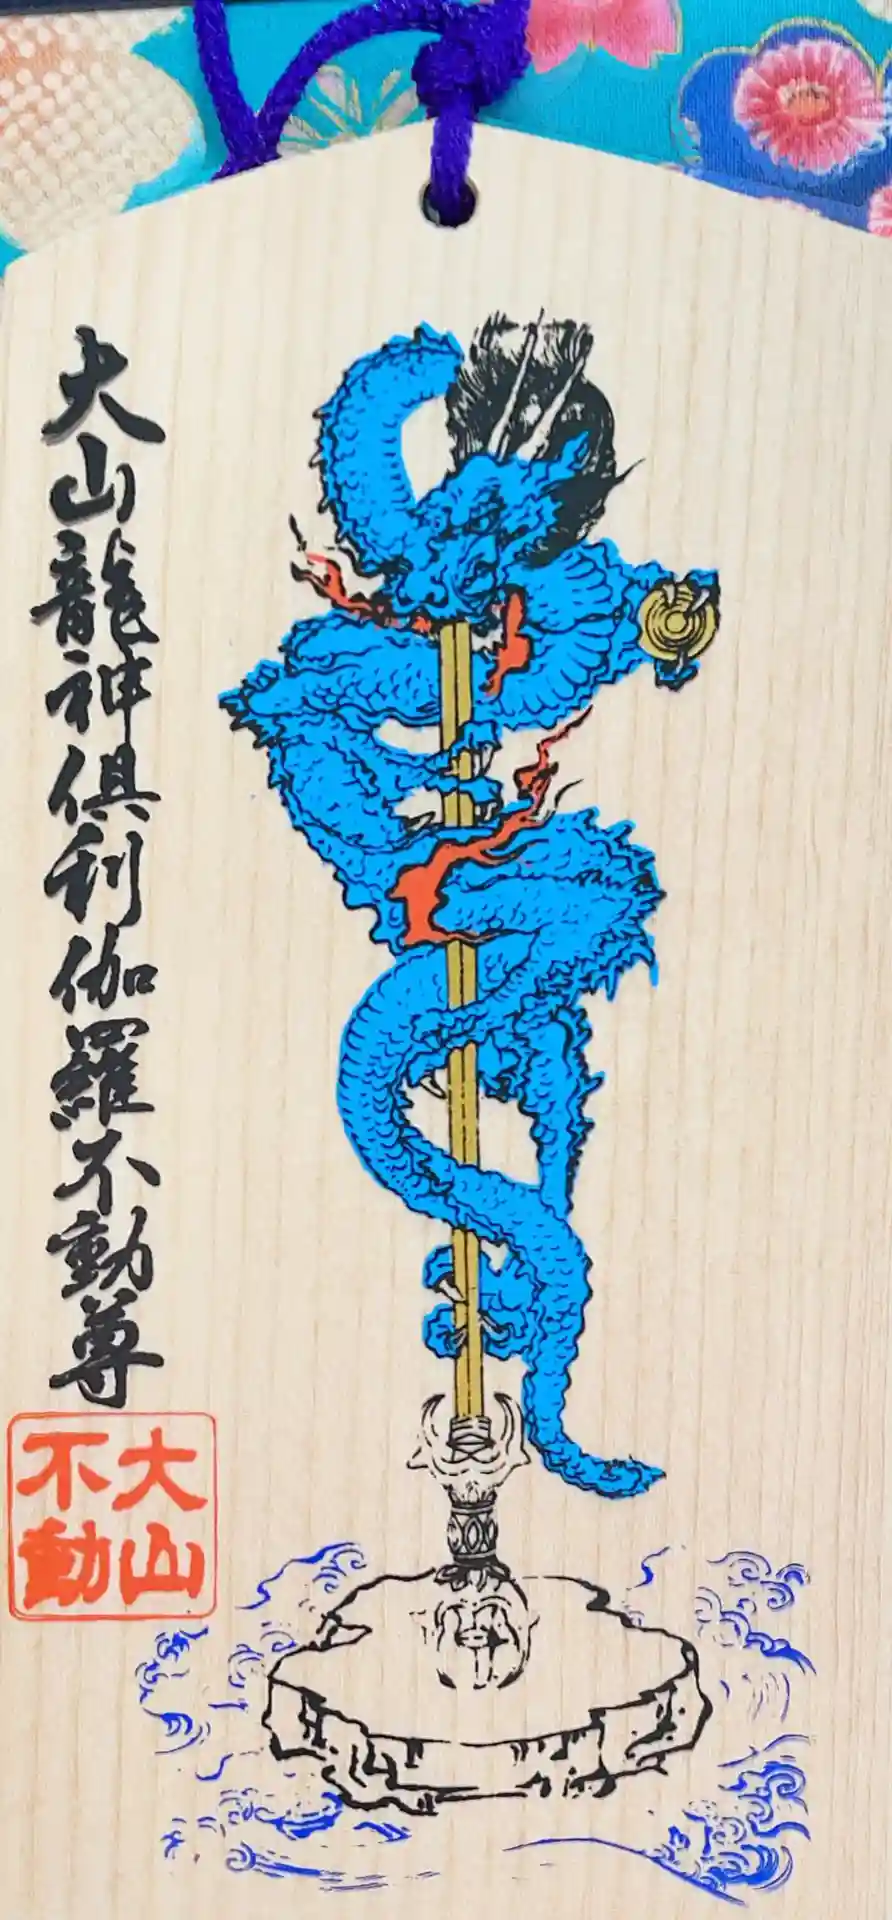 大山龍神倶利伽羅不動尊
大山不動